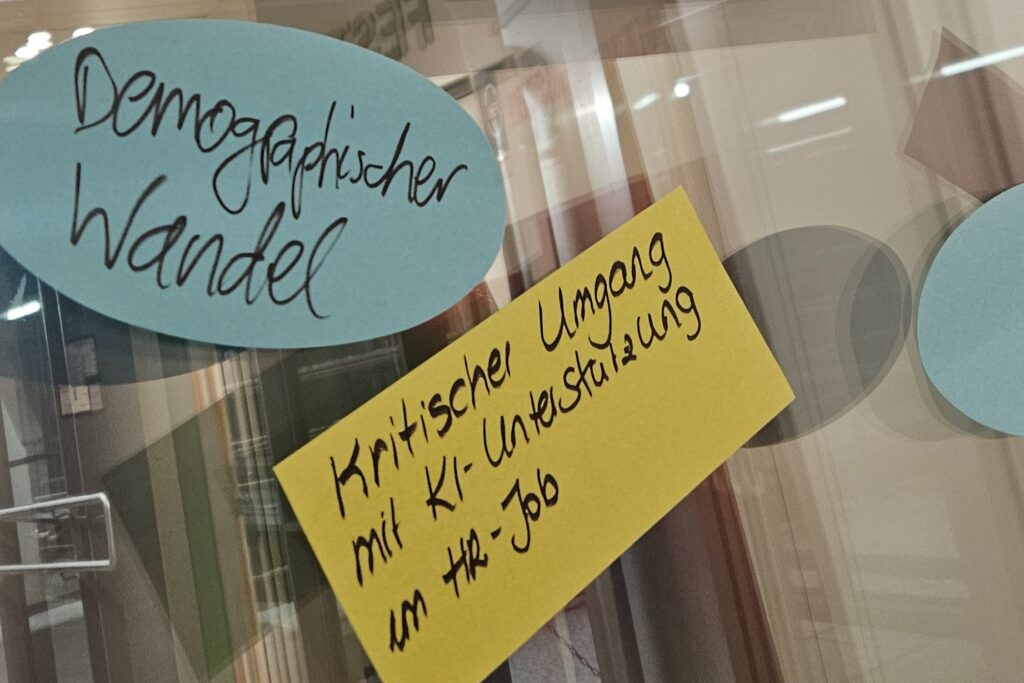 Demographischer
Wandel
Kritischer Umgang
mit KI-Unterstützung
im HR-Job